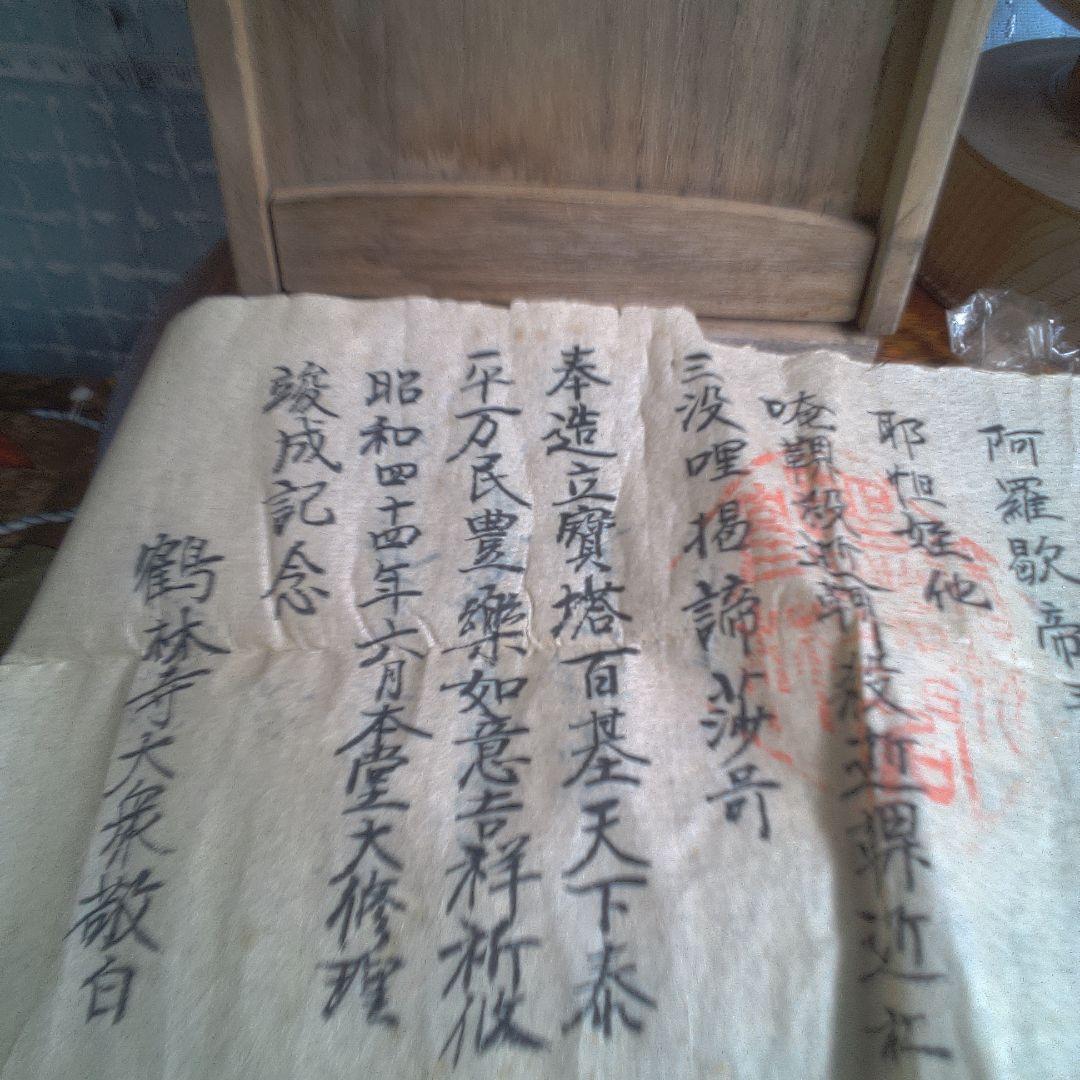 阿羅歇帝
耶怛姪他
唵
三没哩揭諦莎
奉造立寶塔百基天下泰
平万民豊樂如意吉祥祈攸
昭和四十四年六月本堂大修理
竣成記念
鶴林寺大衆敬白